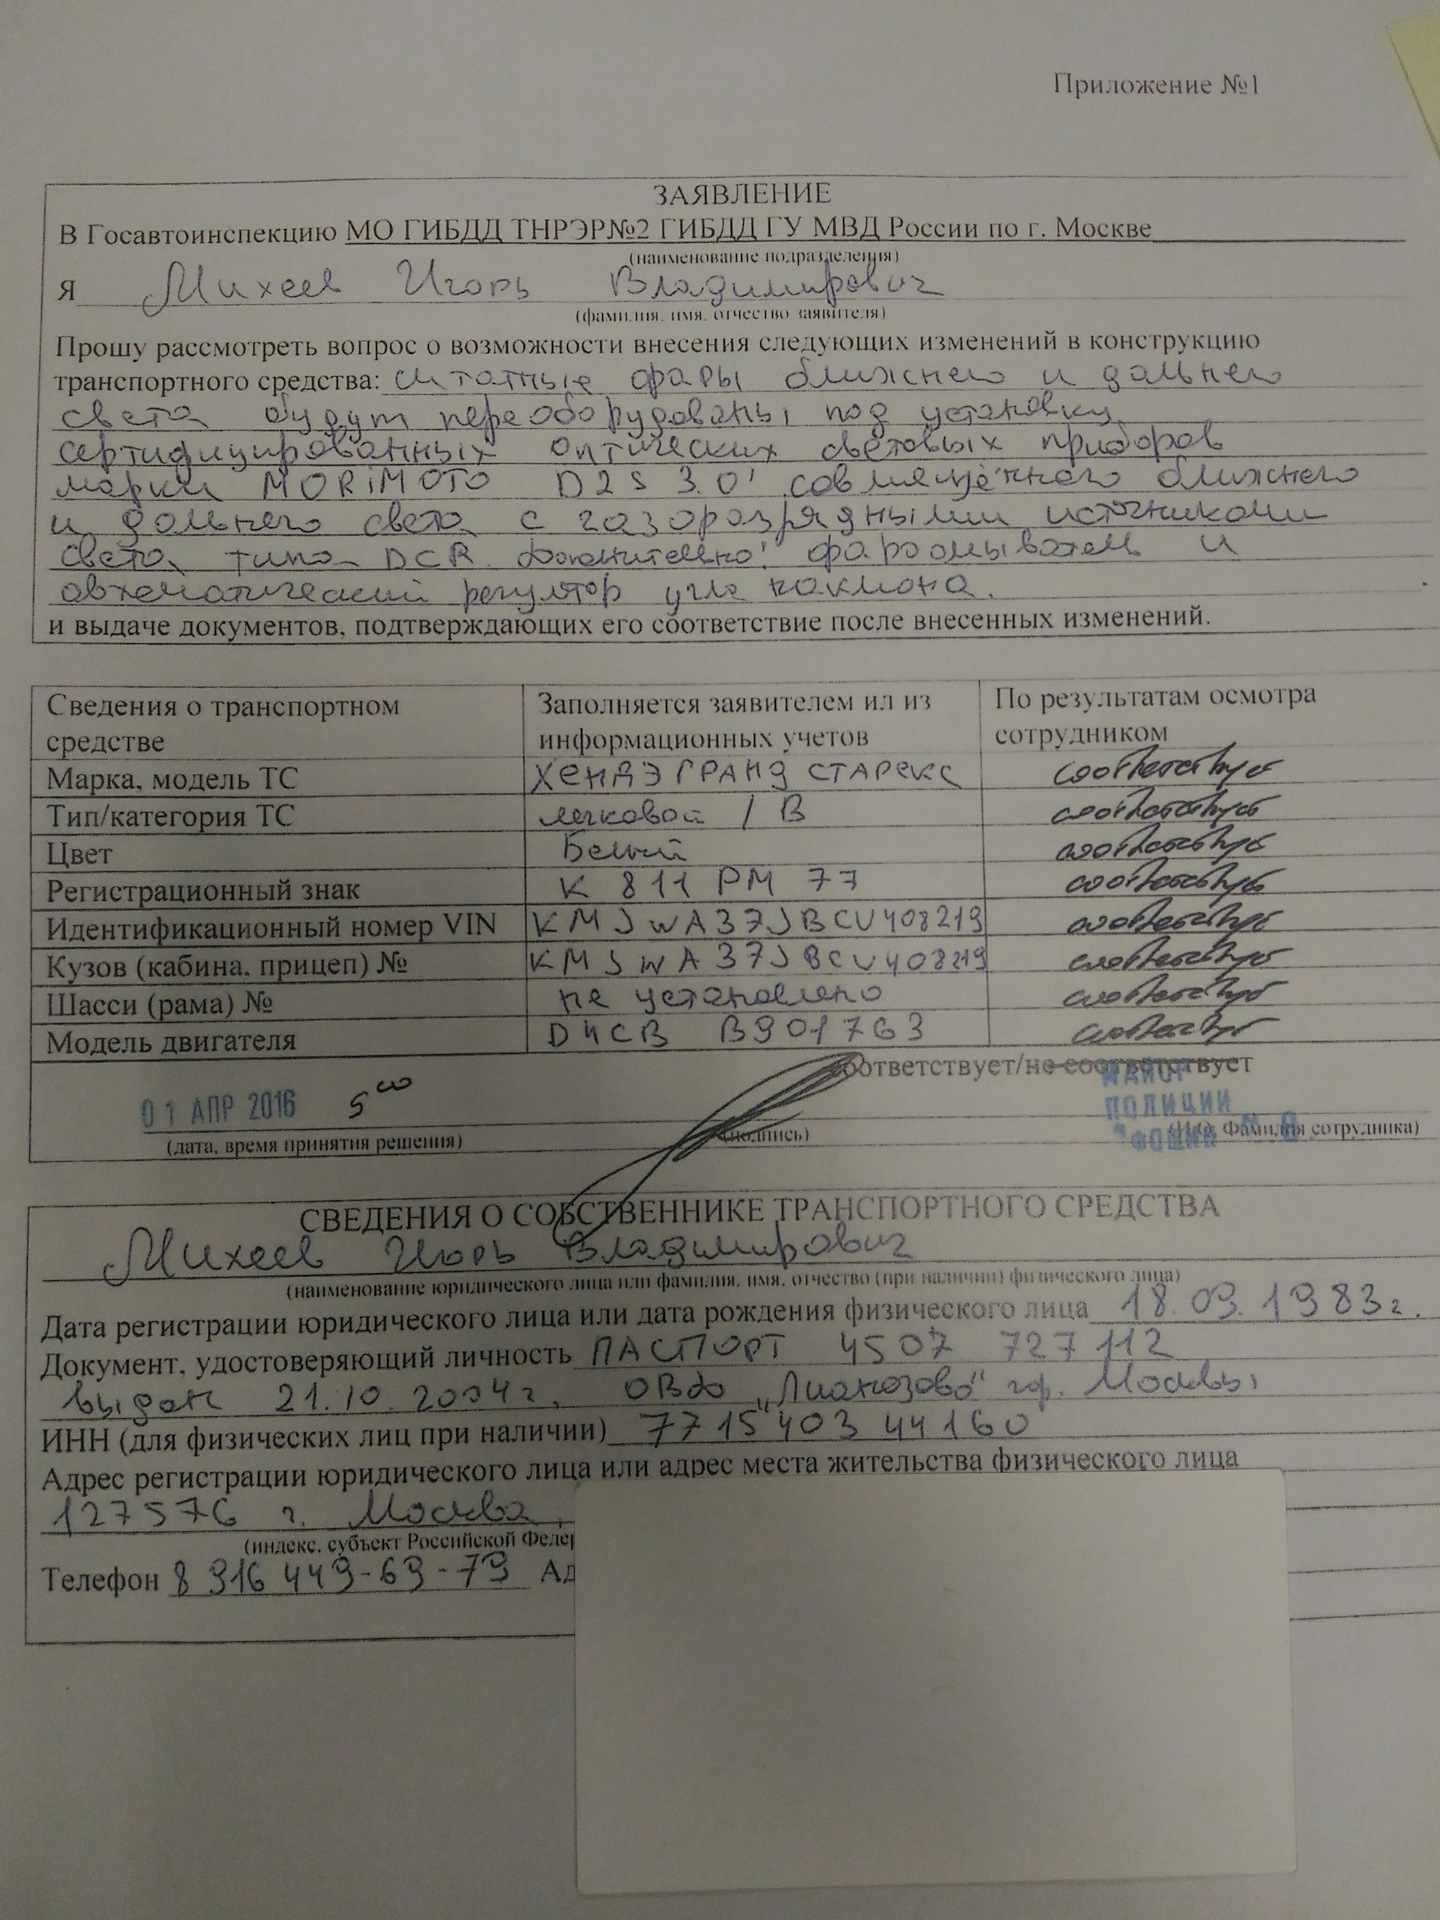 Приложение №1
ЗАЯВЛЕНИЕ
В Госавтоинспекцию МО ГИБДД ТНРЭР№2 ГИБДД ГУ МВД России по г. Москве
(наименование подразделения)
Я Михеев Игорь Владимирович
(фамилия, имя, отчество заявителя)
Прошу рассмотреть вопрос о возможности внесения следующих изменений в конструкцию
транспортного средства: штатные фары ближнего и дальнего
света будут переоборудованы под установку
сертифицированных оптических световых приборов
марки MORiMOTO D2S 3.0' совмещённого ближнего
и дальнего света с газоразрядными источниками
света типа DCR. фароомыватель и
автоматический регулятор угла наклона.
и выдаче документов, подтверждающих его соответствие после внесенных изменений.
Сведения о транспортном средстве Заполняется заявителем ил из информационных учетов По результатам осмотра сотрудником
Марка, модель ТС ХЕНДЭ ГРАНД СТАРЕКС соответствует
Тип/категория ТС легковой / В соответствует
Цвет Белый соответствует
Регистрационный знак К 811 РМ 77 соответствует
Идентификационный номер VIN KMJWA37JBCU408219 соответствует
Кузов (кабина, прицеп) № KMJWA37JBCU408219 соответствует
Шасси (рама) № не установлено соответствует
Модель двигателя D4CB B901763 соответствует
соответствует/не соответствует
01 АПР 2016 5 00 МАЙОР ПОЛИЦИИ
(дата, время принятия решения) (подпись) Фамилия сотрудника)
СВЕДЕНИЯ О СОБСТВЕННИКЕ ТРАНСПОРТНОГО СРЕДСТВА
Михеев Игорь Владимирович
(наименование юридического лица или фамилия, имя, отчество (при наличии) физического лица)
Дата регистрации юридического лица или дата рождения физического лица 18.09.1983г.
Документ, удостоверяющий личность ПАСПОРТ 4507 727112
выдан 21.10.2004г. ОВД "Лианозово" гор. Москвы
ИНН (для физических лиц при наличии) 771540344160
Адрес регистрации юридического лица или адрес места жительства физического лица
127576 г. Москва,
(индекс, субъект Российской Федер
Телефон 8 916 449-69-79 Ад